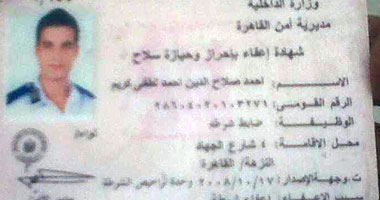 وزارة الداخلية
مديرية امن القاهرة
شهادة إعفاء بإحراز وحيازة سلاح
الاســـــم : احمد صلاح الدين احمد لطفي كريم
الرقم القومى : ٢٨٦٠٤٠٢٠١٠٣٢٧١
الوظيفـــة : ضابط شرطه
محل الاقامة : ٤ شارع الجهاد
النزهة/ القاهرة
ت وجهة الإصدار: ٢٠٠٨/١٠/١٧ وحدة تراخيص الشرطة